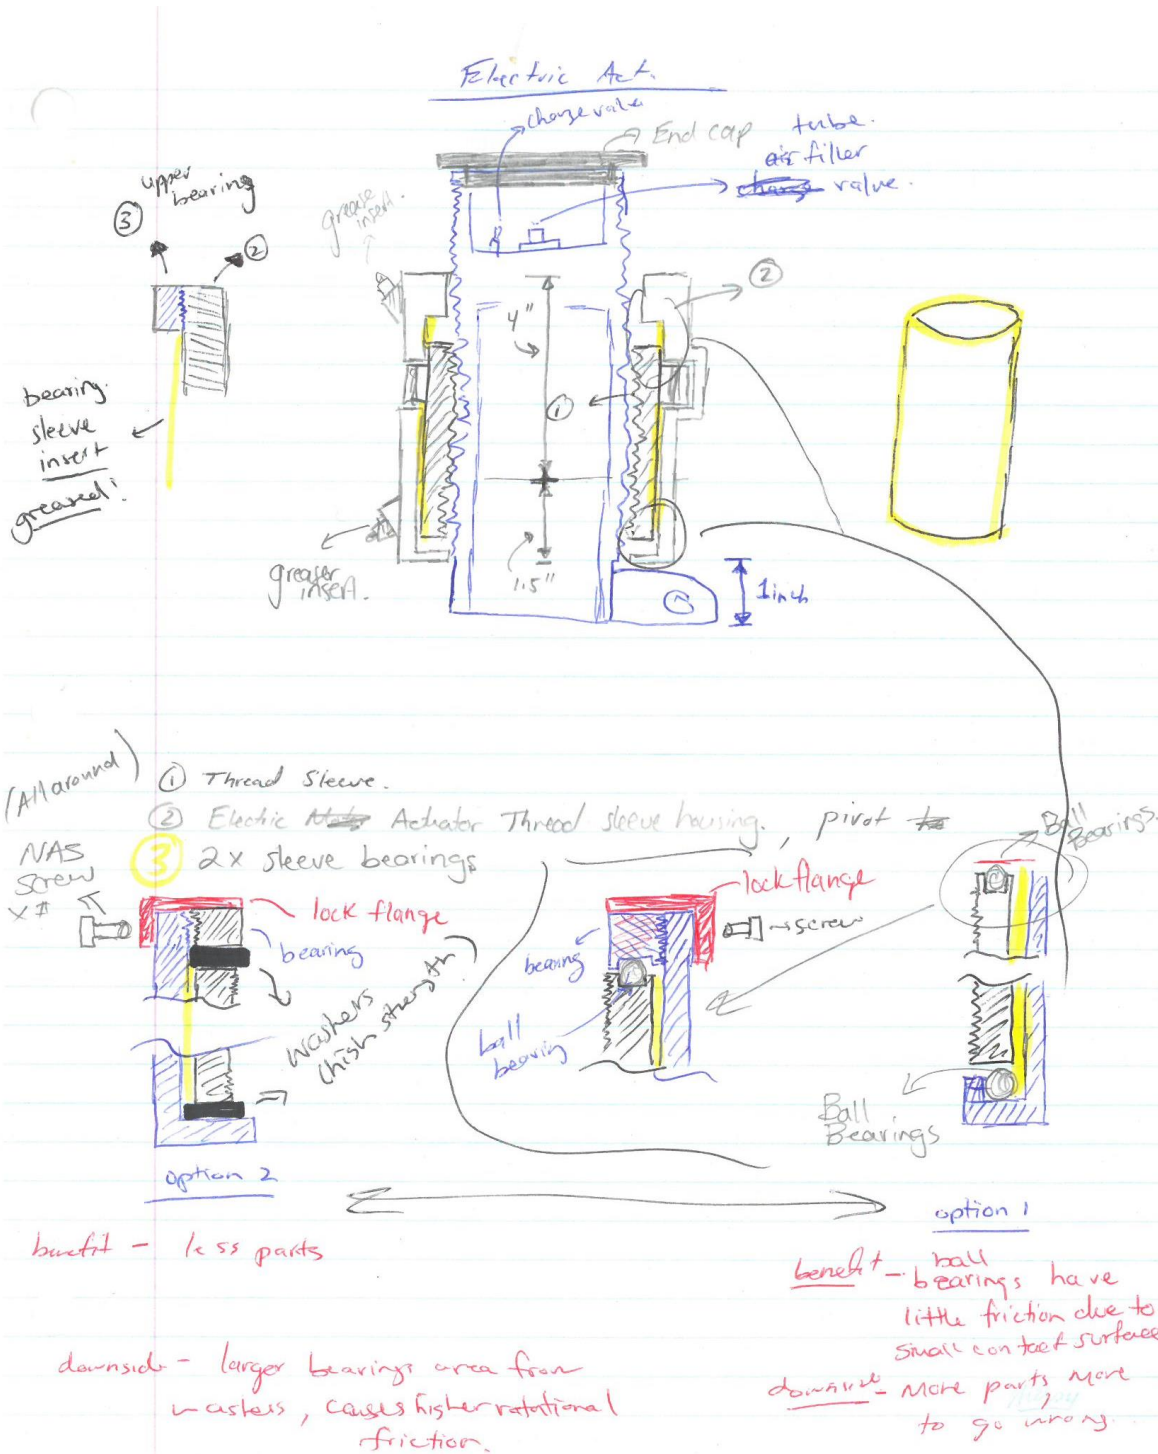 Electric Act.
charge valve
End cap
tube.
air filler
valve.
upper
bearing
3
2
grease
insert.
2
4"
1
bearing
sleeve
insert
greased!
greaser
insert.
1.5"
1 inch
(All around)
1 Thread Sleeve.
2 Electric Actuator Thread sleeve housing, pivot
3 2x sleeve bearings
NAS
screw
x #
lock flange
bearing
washers
(high strength)
lock flange
screw
bearing
ball
bearing
Ball
Bearings.
Ball
Bearings
option 2
option 1
benefit - less parts
downside - larger bearings area from
washers, causes higher rotational
friction.
benefit - ball
bearings have
little friction due to
small contact surface
downside - More parts more
to go wrong.